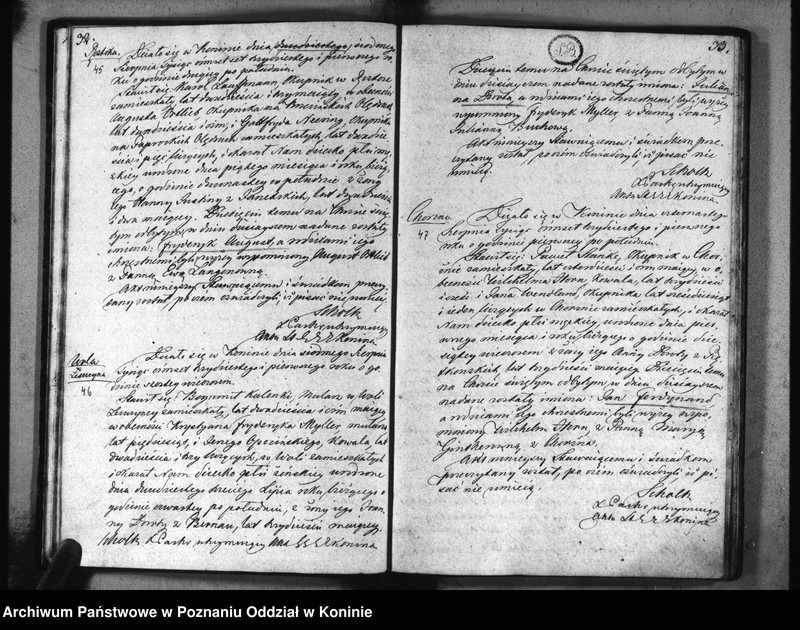 32.
45
Działo się w Koninie dnia siódmego
Sierpnia Tysiąc ośmset trzydziestego i pierwszego ro
ku o godzinie drugiej po południu.
Stawił się Karol Kaufmann, Okupnik w
zamieszkały, lat dwadzieścia i trzy mający, w obecności
Augusta Okupnika na
lat dwadzieścia i ośm, i Gottfryda Okupnika
na zamieszkałych, lat dwadzie
ścia i pięć liczących, i okazał Nam dziecko płci mę
zkiej urodzone dnia piątego miesiąca i roku bieżą
cego, o godzinie dwunastej w południe z żony
jego Hanny Justiny z lat dwadzieścia
i dwa mającej. Dziecięciu temu na Chrzcie świę
tym odbytym w dniu dzisiejszem nadane zostały
imiona: Fryderyk August, a rodzicami jego
chrzestnemi byli wyżej wspomniony August
z Panną Ewą Langenówną.
Akt niniejszy Stawiącemu i świadkom przeczy
tany został, po czem oświadczyli iż pisać nie umieją.
Scholtz
X. Pastor utrzymujący
Akta S. C. Konina
Wola
46
Działo się w Koninie dnia siódmego Sierpnia
Tysiąc ośmset trzydziestego i pierwszego roku o go
dzinie szóstej wieczorem.
Stawił się Bogumił Kaleski, Mularz w Woli
zamieszkały, lat dwadzieścia i ośm mający
w obecności Krystyana Fryderyka Myller, mularza
lat pięćdziesiąt, i Kowala lat
dwadzieścia i trzy liczących, w Woli zamieszkałych
i okazał Nam dziecko płci żeńskiej urodzone
dnia dwudziestego trzeciego Lipca roku bieżącego o
godzinie czwartej po południu, z żony jego Joan
ny Doroty z lat trzydzieści mającej.
Scholtz X. Pastor utrzymujący Akta S. C. Konina
33.
Dziecięciu temu na Chrzcie świętym odbytym w
dniu dzisiejszem nadane zostały imiona: Julian
na Dorota, a rodzicami jego chrzestnemi byli, wyżej
wspomniony Fryderyk Myller z Panną Joanną
Julianną
Akt niniejszy Stawiącemu i świadkom prze
czytany został, po czem oświadczyli iż pisać nie
umieją.
Scholtz
X. Pastor utrzymujący
Akta S. C. Konina
47
Działo się w Koninie dnia czternastego
Sierpnia Tysiąc ośmset trzydziestego i pierwszego
roku o godzinie pierwszej po południu.
Stawił się: Samuel Okupnik w
zamieszkały, lat czterdzieści i ośm mający, w o
becności Wilhelma Horn, Kowala, lat trzydzieści
i sześć i Jana Wendland, Okupnika, lat sześćdziesiąt
i jeden liczących w zamieszkałych, i okazał
Nam dziecko płci męzkiej, urodzone dnia pier
wszego miesiąca i roku bieżącego o godzinie dzie
siątej wieczorem z żony jego Anny Doroty z
lat trzydzieści mającej. Dziecięciu temu
na Chrzcie świętym odbytym w dniu dzisiejszem
nadane zostały imiona: Jan Ferdynand
a rodzicami jego chrzestnemi byli, wyżej wspo
mniony Wilhelm Horn, z Panną Maryą
z
Akt niniejszy Stawiącemu i świadkom
przeczytany został, po czem oświadczyli iż pi
sać nie umieją.
Scholtz
X. Pastor utrzymujący
Akta S. C. Konina
Archiwum Państwowe w Poznaniu Oddział w Koninie